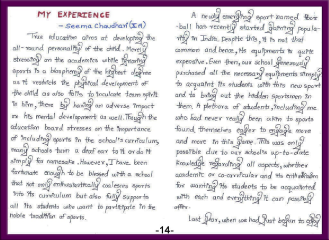 MY EXPERIENCE
- Seema Chaudhari (IX)
True education aims at developing the
all-round personality of the child. Merely
stressing on the academics while ignoring
sports is a blasphemy of the highest degree
as it restricts the physical development of
the child as also fails to inculcate team spirit
in him, there by having an adverse impact
on his mental development as well. Though the
education board stresses on the importance
of including sports in the school's curriculum,
many schools turn a deaf ear to it or do it
simply for namesake. However, I have been
fortunate enough to be blessed with a school
that not only enthusiastically includes sports
into its curriculum but also fully supports
all its students who want to participate in the
noble tradition of sports.
A newly emerging sport named
-ball has recently started gaining popula-
rity in India. Despite this, it is not that
common and hence, its equipments is quite
expensive. Even then, our school generously
purchased all the necessary equipments simply
to acquaint its students with this new sport
and to bring out the hidden sportsmen in
them. A plethora of students, including me
who had never really been akin to sports
found, themselves eager to engage more
and more in this game. This was only
possible due to our school's up-to-date
knowledge regarding all aspects, whether
academic or co-curricular and its enthusiasm
for wanting its students to be acquainted
with each and everything it can possibly
offer.
Last year, when we had just begun to
-14-